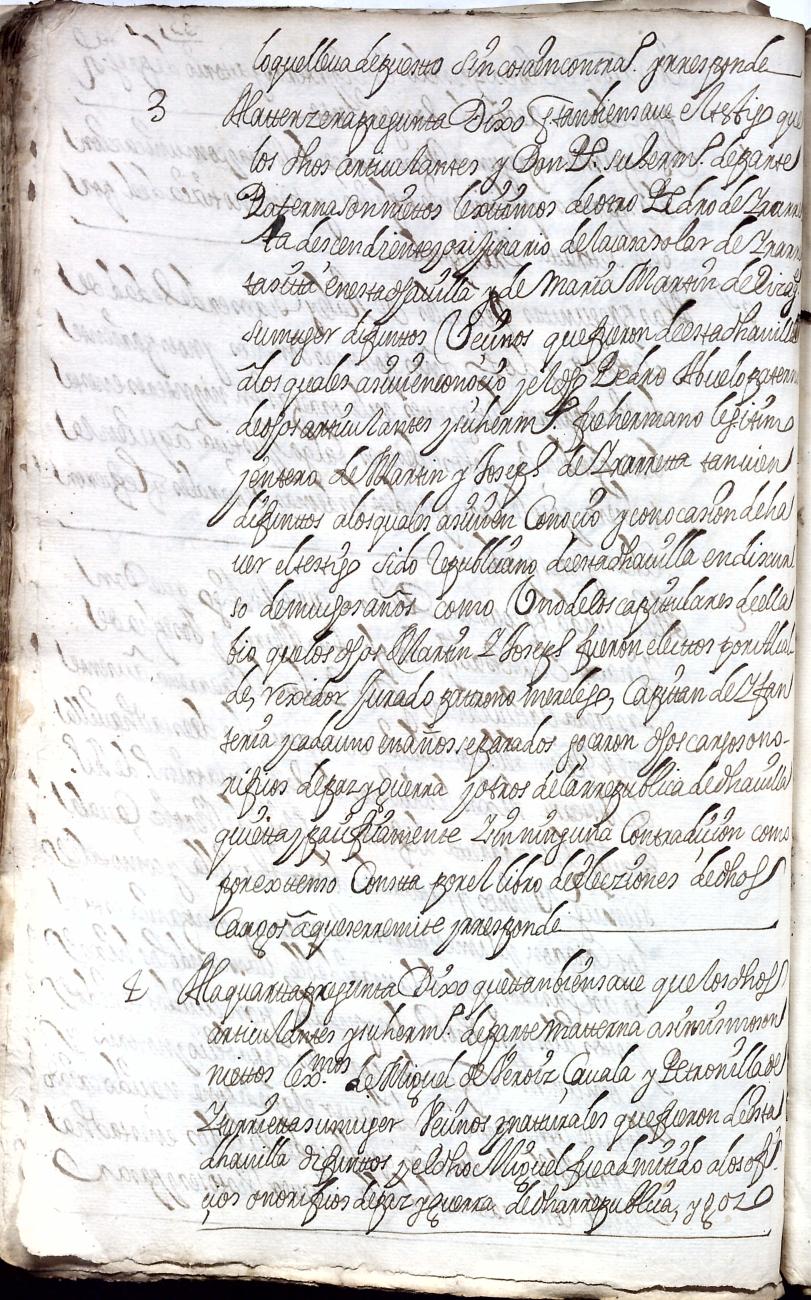 lo que lleva depuesto sin cosa en contra. y rresponde
3 A la terzera pregunta Dixo q tanbien save el testigo que
los dhos articulantes y Don P.º su herm.º de parte
Paterna son nietos lexitimos de otro Pedro de Yrarre
ta descendiente y orijinario de la cassa solar de Yrarre
ta sita en esta dha villa y de Maria Martin de
su muger difuntos Vecinos que fueron de esta dha villa
a los quales asi vien conocio y el dho Pedro Abuelo paterno
de dhos articulantes y su herm.º fue hermano lejitimo
y entero de Martin y Joseph de Yrarreta tanvien
difuntos a los quales asi vien Conocio y con ocasion de ha
ver el testigo sido republicano de esta dha villa en discur
so de muchos años como Uno de los capitulares de ella
bio que los dhos Martin y Joseph fueron electos por Alcal
de, rexidor Jurado patrono merelego, Capitan de Ynfan
teria y cada uno en años separados gocaron dhos cargos ono
rificios de paz y guerra y otros de la rrepublica de dha villa
quieta y pacificamente y sin ninguna Contradicion como
por extenso Consta por el libro de elecziones de dhos
Cargos a que se rremite y rresponde
4 A la quarta pregunta Dixo que tanbien save que los dhos
articulantes y su herm.º de parte materna asimismo son
nietos lex.mos de Miguel de Veroiz Cavala y Petronilla de
Yturrieta su muger Vecinos y naturales que fueron de esta
dha villa difuntos y el dho Miguel fue admitido a los ofi
cios onorificios de paz y guerra de dha rrepublica, y gozo